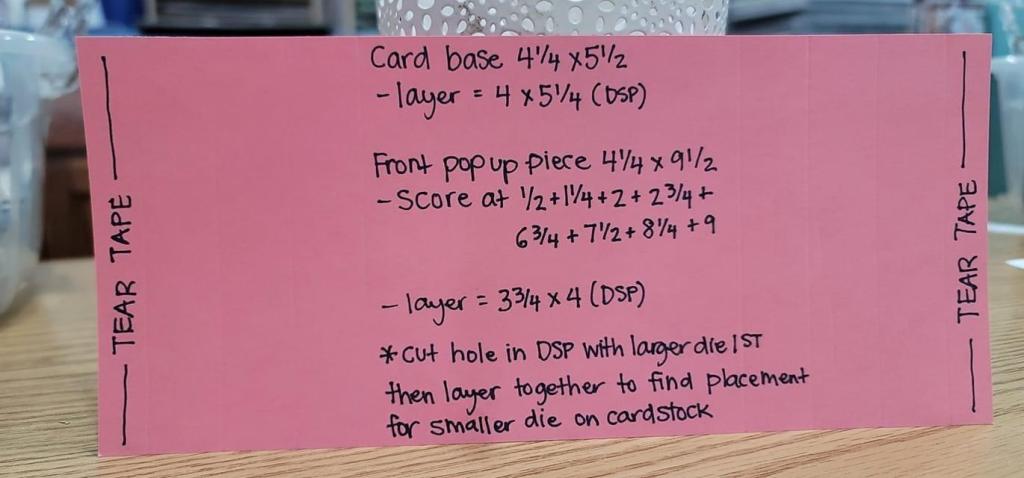 TEAR TAPE
Card base 4 1/4 x 5 1/2
- layer = 4 x 5 1/4 (DSP)
Front popup piece 4 1/4 x 9 1/2
- Score at 1/2 + 1 1/4 + 2 + 2 3/4 +
6 3/4 + 7 1/2 + 8 1/4 + 9
- layer = 3 3/4 x 4 (DSP)
* cut hole in DSP with larger die 1ST
then layer together to find placement
for smaller die on cardstock
TEAR TAPE